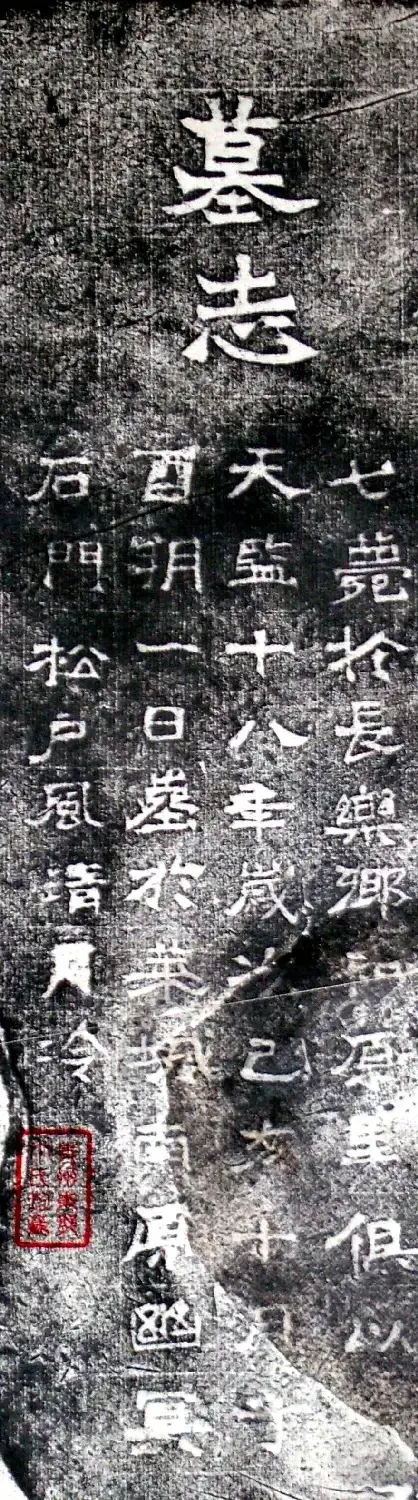 墓志
七薨於長樂鄉原里俱以
天監十八年歲次己亥十月
酉朔一日葬於萊城南原幽冥
石門松户風清冷